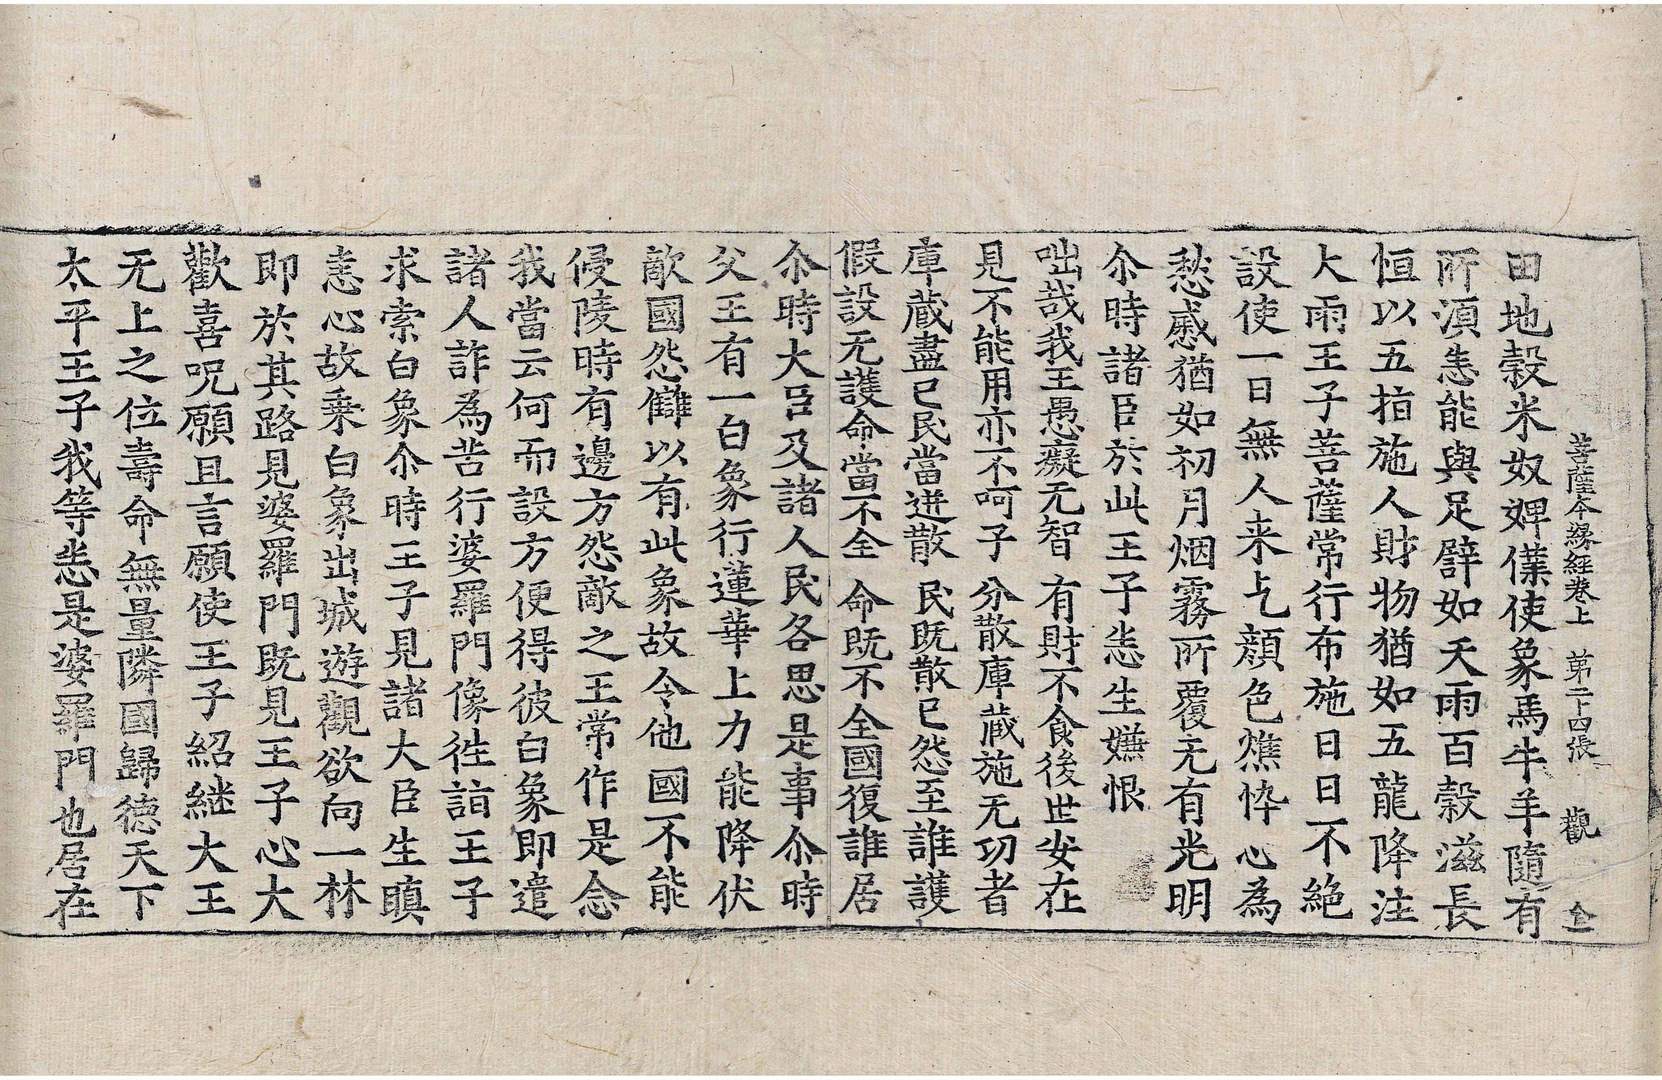 菩薩本縁経卷上 第二十四張 觀 全
田地穀米奴婢僕使象馬牛羊隨有
所湏恚能與足譬如天雨百穀滋長
恒以五指施人財物猶如五龍降注
大雨王子菩薩常行布施日日不絶
設使一日無人来乞顔色燋悴心為
愁慼猶如初月烟霧所覆无有光明
尒時諸臣於此王子恚生嫌恨
咄哉我王愚癡无智 有財不食後世安在
見不能用亦不呵子 分散庫蔵施无功者
庫蔵盡已民當迸散 民既散已怨至誰護
假設无護命當不全 命既不全國復誰居
尒時大臣及諸人民各思是事尒時
父王有一白象行蓮華上力能降伏
敵國怨讎以有此象故令他國不能
侵陵時有邊方怨敵之王常作是念
我當云何而設方便得彼白象即遣
諸人詐為苦行婆羅門像徃詣王子
求索白象尒時王子見諸大臣生瞋
恚心故乗白象出城遊觀欲向一林
即於其路見婆羅門既見王子心大
歡喜呪願且言願使王子紹継大王
无上之位壽命無量隣國歸德天下
太平王子我等恚是婆羅門也居在